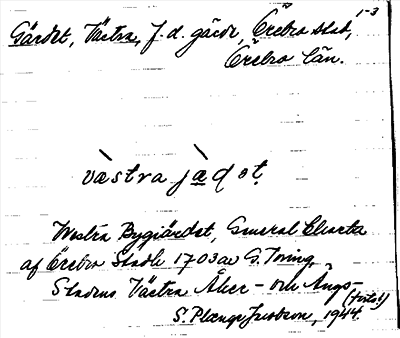 1-3
Gärdet, Västra, f.d. gärde, Örebro stad,
Örebro län.
västra jàḍəṭ
Westra Bygiärdet, General Charta
af Örebro Stadh 1703 av G. Toring,
Stadens Västra Åker- och Ängs-
(forts!)
S. Plænge Jacobson, 1944.